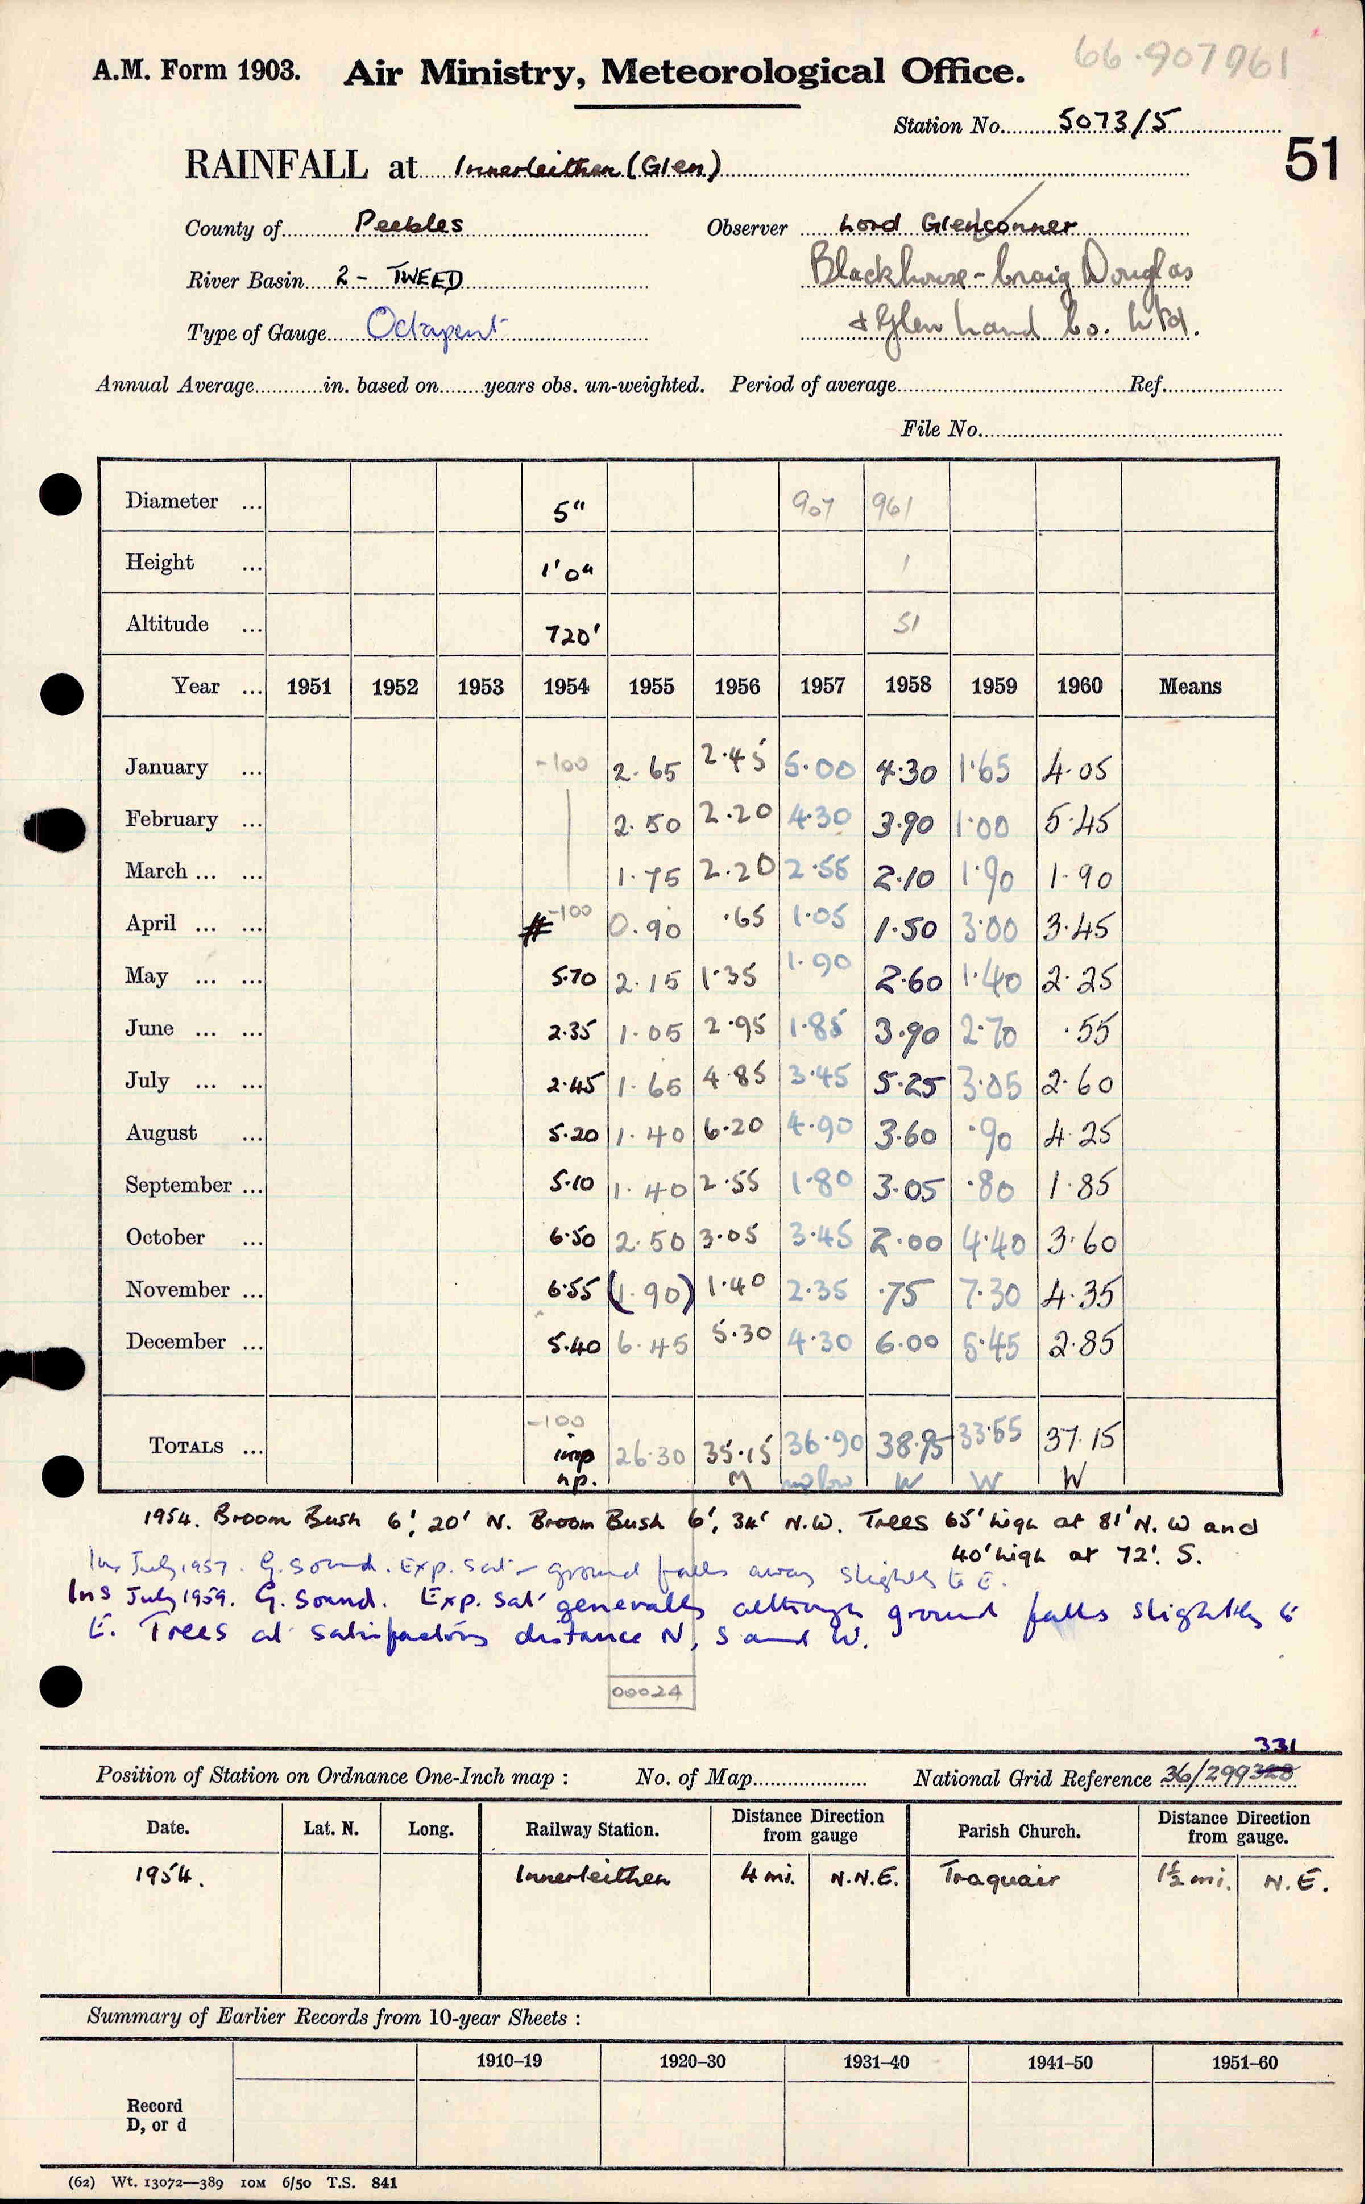 66.907961
A.M. Form 1903. Air Ministry, Meteorological Office.
Station No. 5073/5
51
RAINFALL at Innerleithen (Glen)
County of Peebles Observer Lord Glenconner
Blackhouse-Craig Douglas
River Basin 2 - TWEED
& Glen Land Co. Ltd.
Type of Gauge Octapent
Annual Average in. based on years obs. un-weighted. Period of average Ref.
File No.
Diameter ... 5" 907 961
Height ... 1'0" 1
Altitude ... 720' 51
Year ... 1951 1952 1953 1954 1955 1956 1957 1958 1959 1960 Means
January ... -100 2.65 2.45 5.00 4.30 1.65 4.05
February ... 2.50 2.20 4.30 3.90 1.00 5.45
March ... ... 1.75 2.20 2.55 2.10 1.90 1.90
April ... ... # -100 0.90 .65 1.05 1.50 3.00 3.45
May ... ... 5.70 2.15 1.35 1.90 2.60 1.40 2.25
June ... ... 2.35 1.05 2.95 1.85 3.90 2.70 .55
July ... ... 2.45 1.65 4.85 3.45 5.25 3.05 2.60
August ... 5.20 1.40 6.20 4.90 3.60 .90 4.25
September ... 5.10 1.40 2.55 1.80 3.05 .80 1.85
October ... 6.50 2.50 3.05 3.45 2.00 4.40 3.60
November ... 6.55 (1.90) 1.40 2.35 .75 7.30 4.35
December ... 5.40 6.45 5.30 4.30 6.00 5.45 2.85
-100
TOTALS ... imp 26.30 35.15 36.90 38.95 33.55 37.15
np. M W W W
1954. Broom Bush 6', 20' N. Broom Bush 6', 34' N.W. Trees 65' high at 81' N.W and
40' high at 72'. S.
Ins July 1957. G. sound. Exp. sat - ground falls away slightly to E.
Ins July 1959. G. Sound. Exp. sat generally although ground falls slightly to
E. Trees at satisfactory distance N, S and W.
00024
331
Position of Station on Ordnance One-Inch map : No. of Map National Grid Reference 36/299328
Date. Lat. N. Long. Railway Station. Distance Direction from gauge Parish Church. Distance Direction from gauge.
1954. Innerleithen 4 mi. N.N.E. Traquair 1½ mi. N.E.
Summary of Earlier Records from 10-year Sheets :
1910-19 1920-30 1931-40 1941-50 1951-60
Record
D, or d
(62) Wt. 13072—389 10M 6/50 T.S. 841